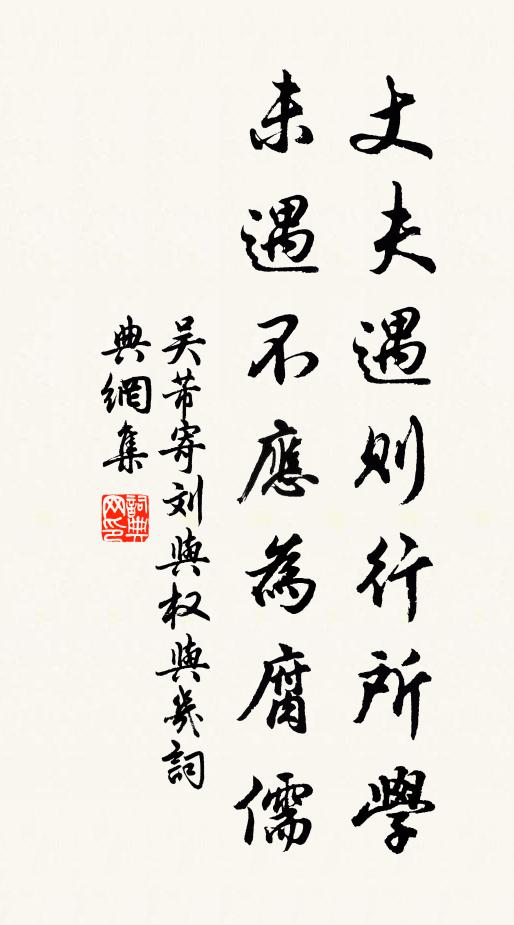 丈夫遇則行所學
未遇不應為腐儒
吴芾寄刘與权與幾詞
典網集
詞典網印